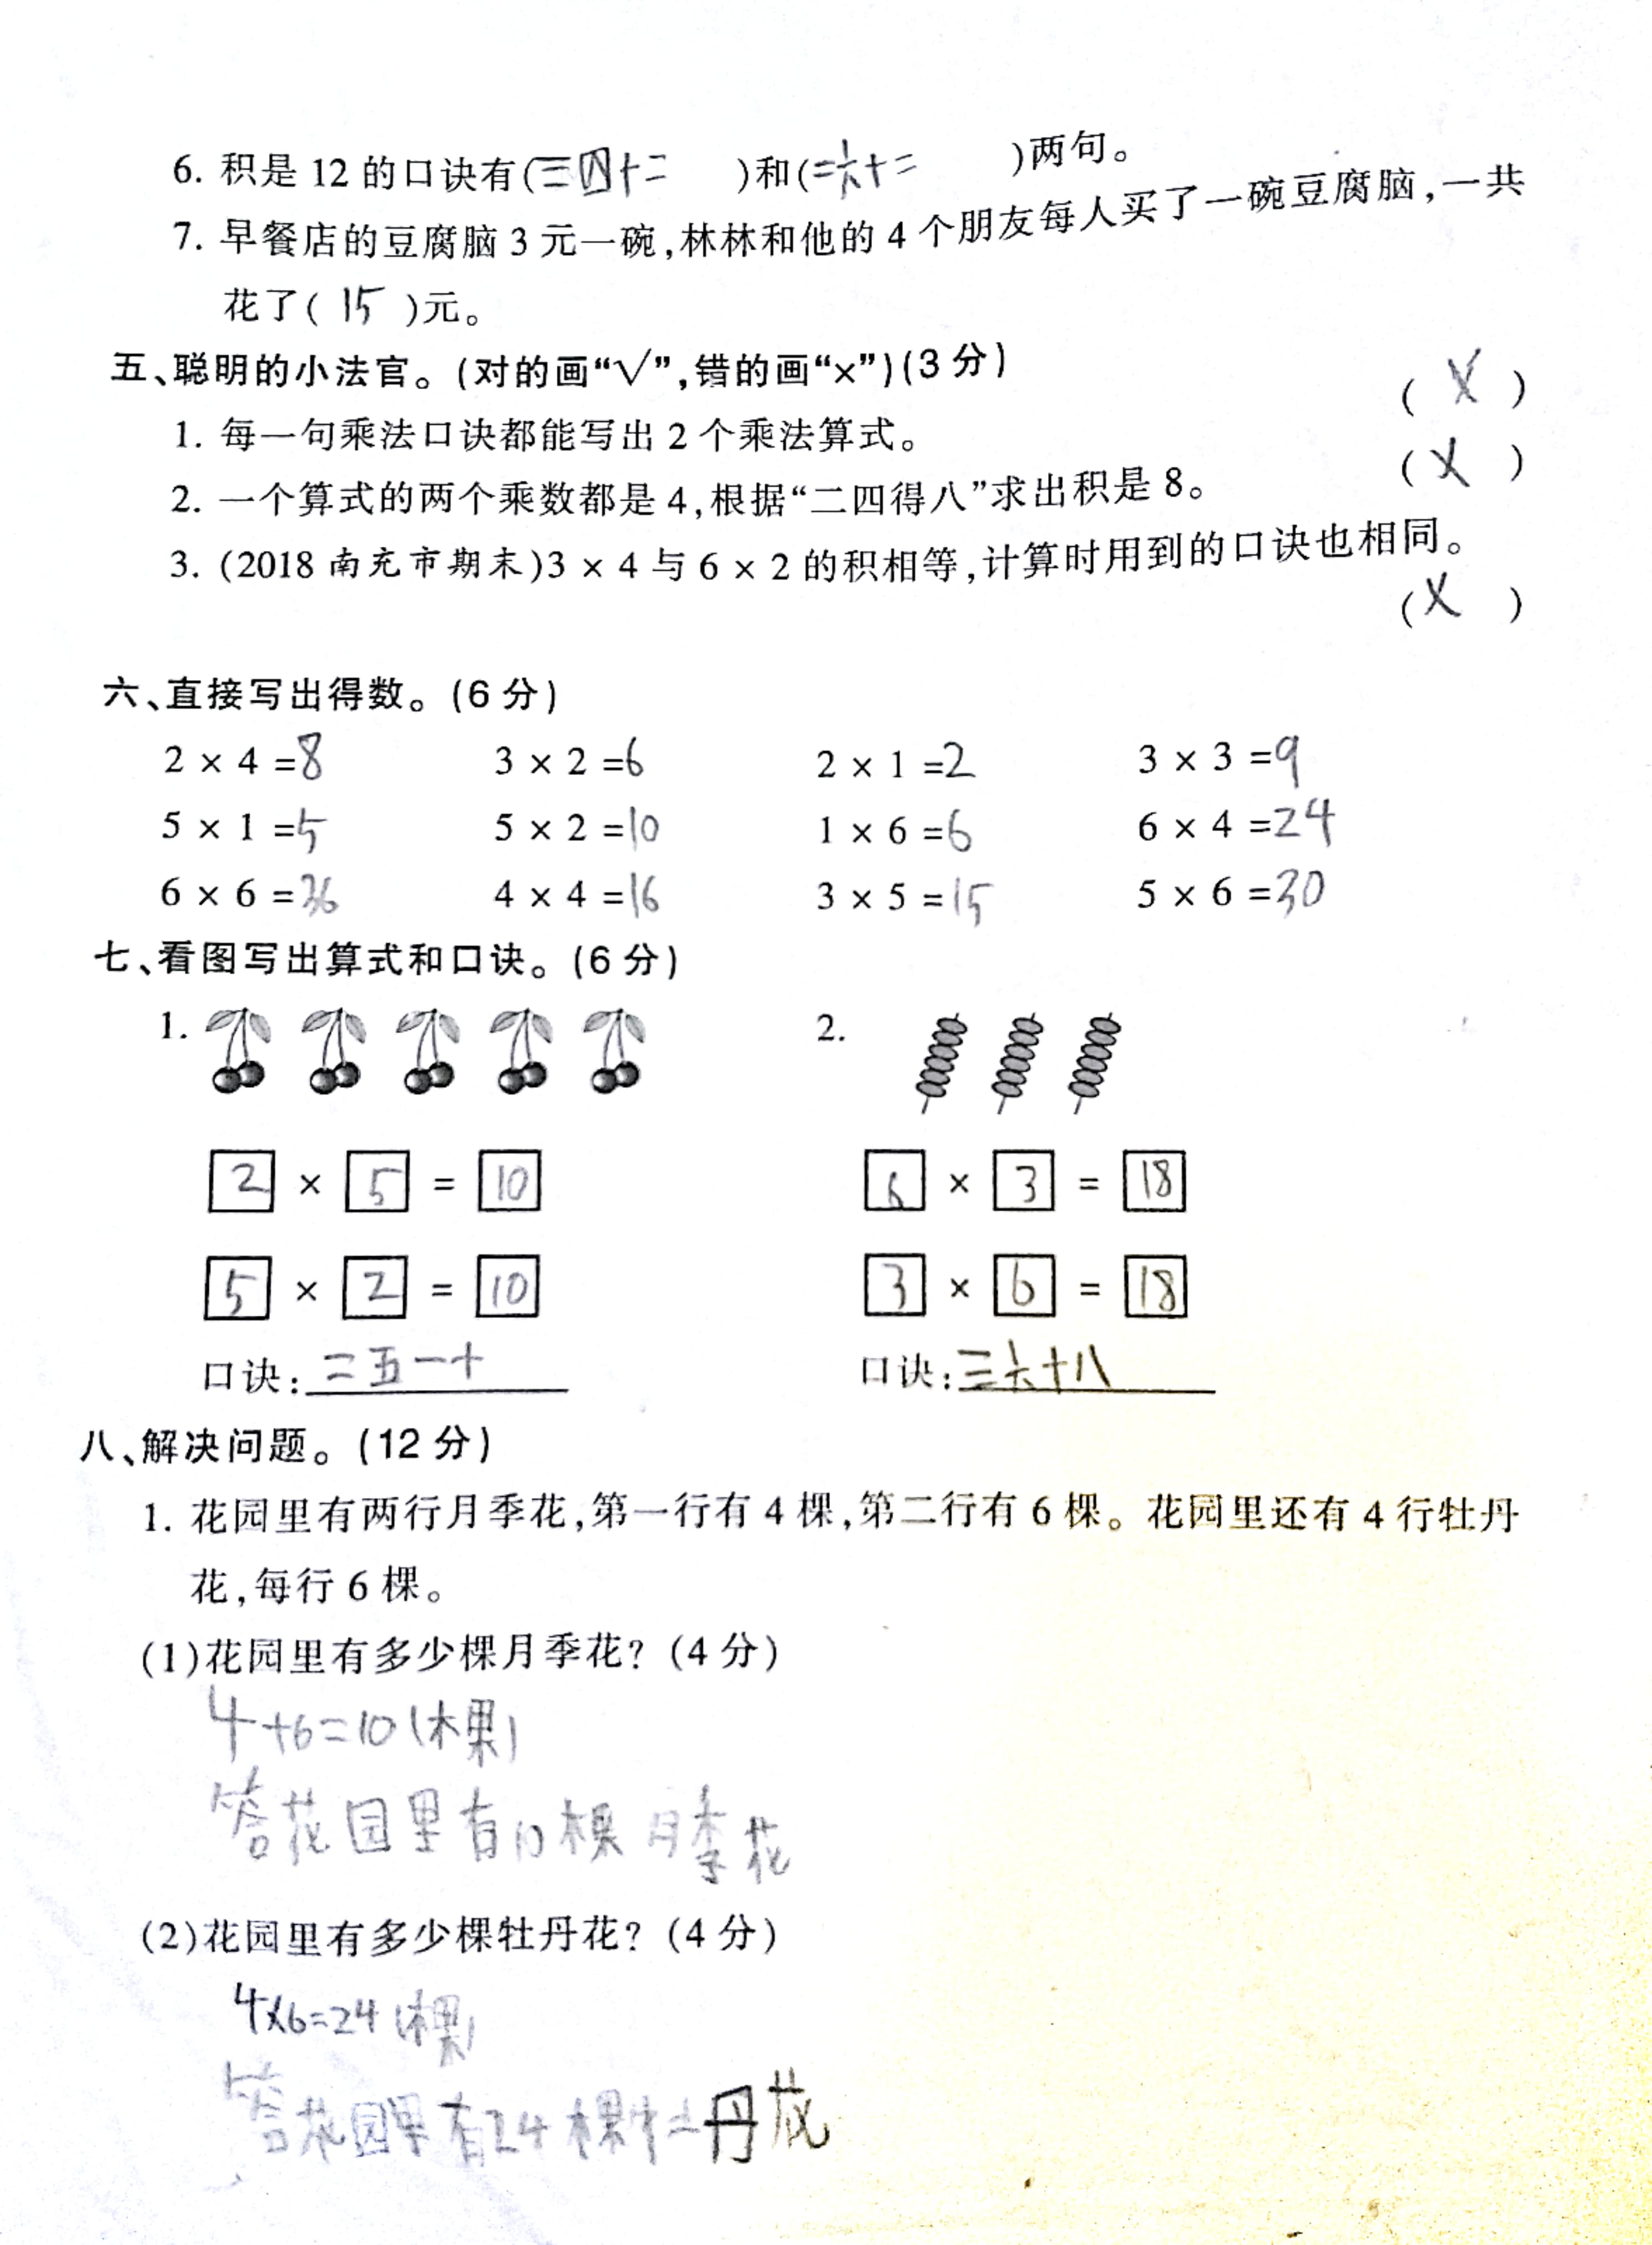 6. 积是 12 的口诀有(三四十二 )和(二六十二 )两句。
7. 早餐店的豆腐脑 3 元一碗,林林和他的 4 个朋友每人买了一碗豆腐脑,一共
花了( 15 )元。
五、聪明的小法官。(对的画“√”,错的画“×”)(3 分)
1. 每一句乘法口诀都能写出 2 个乘法算式。 ( × )
2. 一个算式的两个乘数都是 4,根据“二四得八”求出积是 8。 ( × )
3. (2018 南充市期末)3 × 4 与 6 × 2 的积相等,计算时用到的口诀也相同。
( × )
六、直接写出得数。(6 分)
2 × 4 =8 3 × 2 =6 2 × 1 =2 3 × 3 =9
5 × 1 =5 5 × 2 =10 1 × 6 =6 6 × 4 =24
6 × 6 =36 4 × 4 =16 3 × 5 =15 5 × 6 =30
七、看图写出算式和口诀。(6 分)
1. 2.
2 × 5 = 10 6 × 3 = 18
5 × 2 = 10 3 × 6 = 18
口诀:二五一十 口诀:三六十八
八、解决问题。(12 分)
1. 花园里有两行月季花,第一行有 4 棵,第二行有 6 棵。花园里还有 4 行牡丹
花,每行 6 棵。
(1)花园里有多少棵月季花? (4 分)
4+6=10(棵)
答花园里有10棵月季花
(2)花园里有多少棵牡丹花? (4 分)
4×6=24(棵)
答花园里有24棵牡丹花